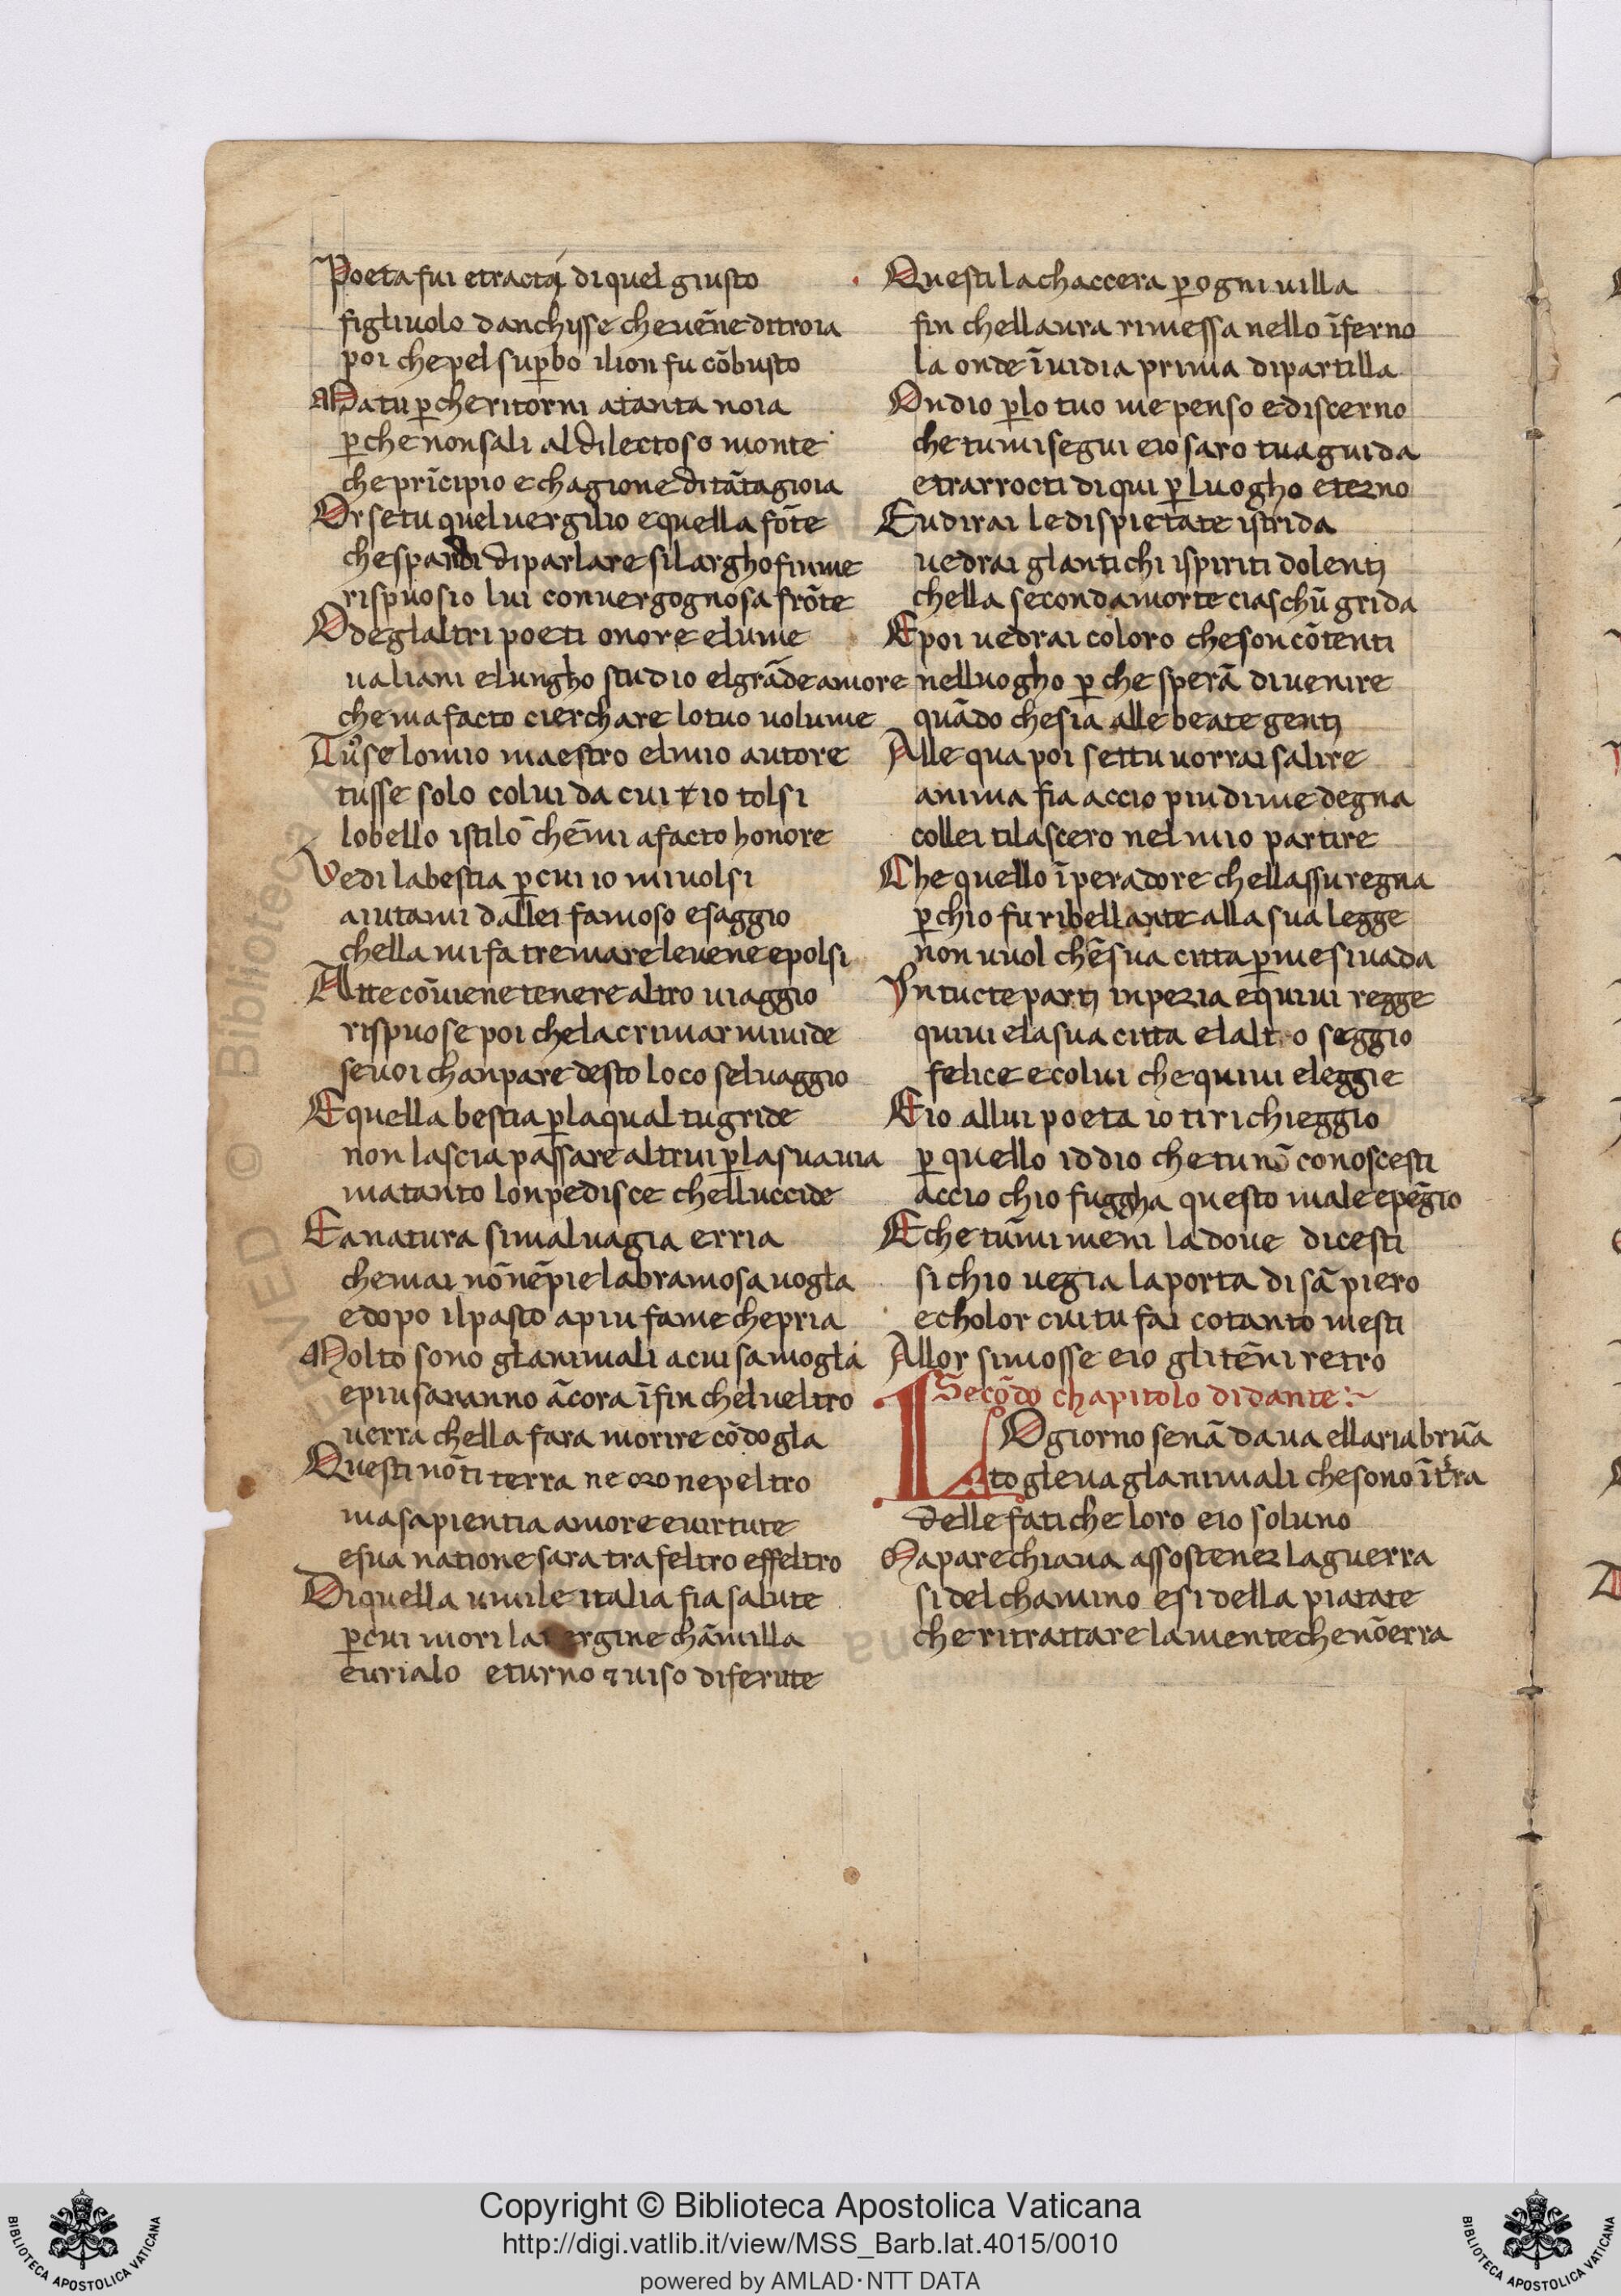 Poeta fui e tractai di quel giusto
figliuolo danchisse che uēne di troia
poi che pel suꝑbo ilion fu cōbusto
Ma tu ꝑche ritorni atanta noia
ꝑche non sali al dilectoso monte
che prīcipio e chagione di tāta gioia
Or se tu quel uergilio e quella fōte
che spandi di parlare si largho fiume
rispuosio lui con uergognosa frōte
O deglaltri poeti onore e lume
ualiami elungho studio elgrāde amore
che ma facto cierchare lo tuo uolume
Tu se lo mio maestro elmio autore
tusse solo colui da cui io tolsi
lo bello istilo chēmi a facto honore
Vedi la bestia ꝑ cui io mi uolsi
aiutami dallei famoso e saggio
chella mi fa tremare le uene e polsi
Atte cōuiene tenere altro uiaggio
rispuose poi che lacrimar mi uide
se uoi chanpare desto loco seluaggio
E quella bestia ꝑ la qual tu gride
non lascia passare altrui ꝑ la sua uia
ma tanto lonpedisce chelluccide
E a natura si maluagia e rria
che mai nō nēpie la bramosa uogla
e dopo il pasto a piu fame che pria
Molto sono glanimali a cui samogla
e piu saranno ācora īfin chel ueltro
uerra chella fara morire cō dogla
Questi nō ti terra ne oro ne peltro
ma sapientia amore e uirtute
e sua natione sara tra feltro effeltro
Di quella umile italia fia salute
ꝑ cui mori la uergine chāmilla
eurialo e turno ⁊ niso di ferute
Questi la chaccera ꝑ ogni uilla
fin chellaura rimessa nello īferno
la onde īuidia prima dipartilla
Ondio ꝑ lo tuo me penso e discerno
che tu mi segui e io saro tua guida
e trarrocti di qui ꝑ luogho eterno
E udirai le dispietate istrida
uedrai glantichi ispiriti dolenti
chella seconda morte ciaschū grida
E poi uedrai coloro che son cōtenti
nel luogho ꝑ che sperā di uenire
quādo che sia alle beate genti
Alle qua poi settu uorrai salire
anima fia accio piu di me degna
collei ti lascero nel mio partire
Che quello īperadore chellassu regna
ꝑchio fu ribellante alla sua legge
non uuol chēsua citta ꝑ me si uada
In tucte parti inperia e quiui regge
quiui e la sua citta e lalto seggio
felice e colui che quiui eleggie
E io allui poeta io ti richieggio
ꝑ quello iddio che tu nō conoscesti
accio chio fuggha questo male e pēgio
E che tu mi meni la doue dicesti
si chio uegia la porta di sā piero
e cholor cui tu fai cotanto mesti
Allor si mosse e io gli tēni retro
Secōdo chapitolo di dante
LO giorno senādaua ellaria brūa
togleua glanimali che sono ī tr̄a
delle fatiche loro e io sol uno
Maparechiaua assostener la guerra
si del chamino e si della piatate
che ritrattare la mente che nō erra
Copyright © Biblioteca Apostolica Vaticana
http://digi.vatlib.it/view/MSS_Barb.lat.4015/0010
powered by AMLAD·NTT DATA
BIBLIOTECA APOSTOLICA VATICANA
BIBLIOTECA APOSTOLICA VATICANA